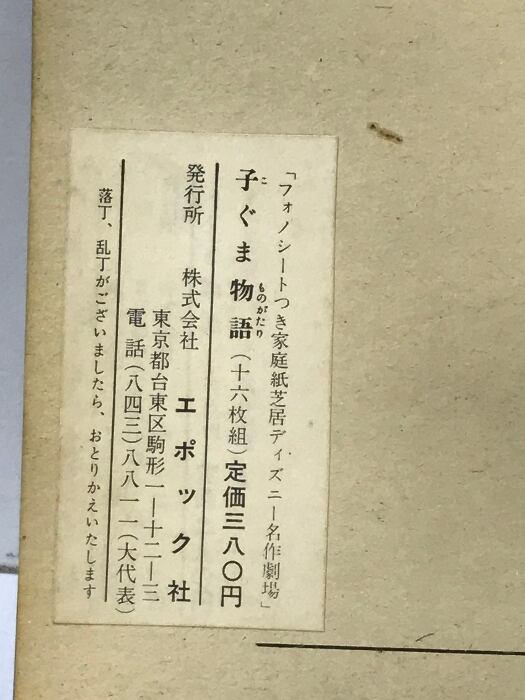 「フォノシートつき家庭紙芝居ディズニー名作劇場」
子ぐま物語（十六枚組）定価三八〇円
こ ものがたり
発行所 株式会社 エポック社
東京都台東区駒形一ー十二ー三
電話（八四三）八八一一（大代表）
落丁、乱丁がございましたら、おとりかえいたします